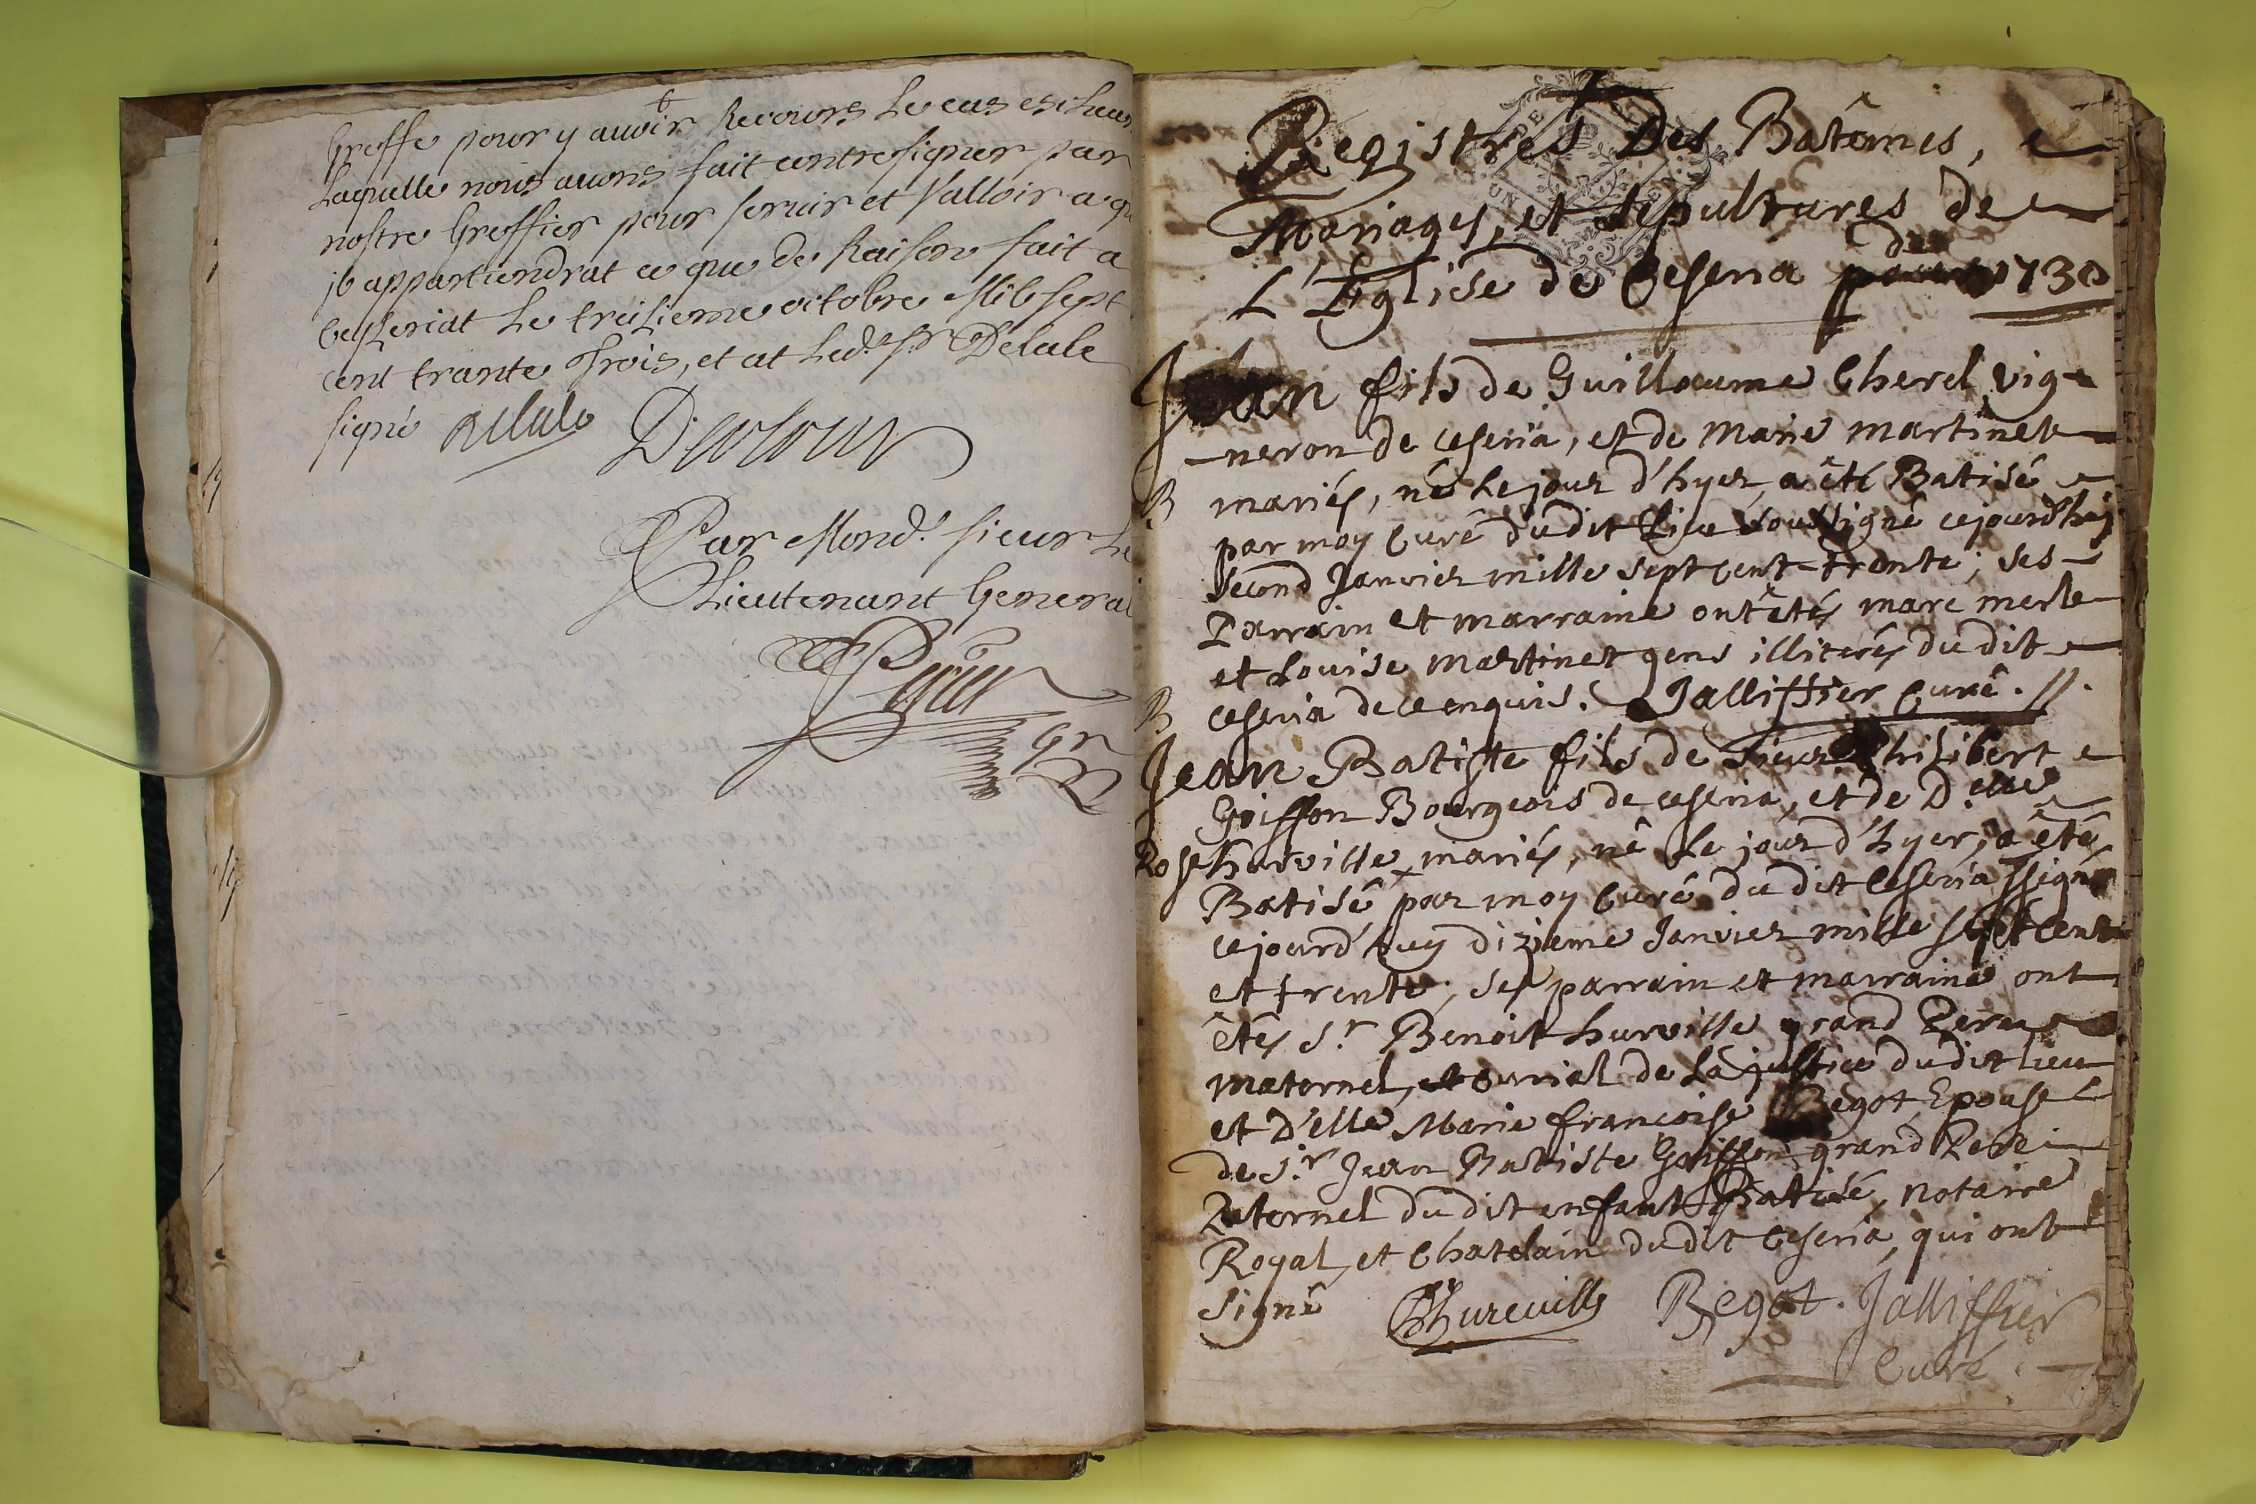 Greffe pour y auoir Recours Le cas escheant
Laquelle nous auons fait contresigner par
nostre Greffier pour seruir et Valloir a qui
il appartiendrat ce que de Raison fait a
Ceyseriat Le treizieme octobre Mil sept
cent trante trois, et at Led.t Sr Delale
signé Delale
Par Mond.t sieur Le
Lieutenant General
Perier
gr
Registres Des Batêmes,
Mariages, et sepultures de
L'Eglise de Ceseria de 1730
Jean fils de Guillaume Cherel vig-
neron de ceseria, et de Marie martinet
B mariés, né le jour d'hyer, a été Batisé
par moy Curé dudit Lieu soussigné cejourdhuy
second Janvier mille sept cent trente; ses
Parrain et marraine ont étés marc merle
et Louise Martinet gens illiterés dudit
B ceseria de ce enquis. Jalliffier Curé. //.
Jean Batiste fils de sieur Philibert
Goiffon Bourgeois de ceseria, et de D.elle
Rose hurville mariés, né le jour d'hyer, a étés
Batisé par moy Curé du dit Ceseria ssigné
cejourd'huy dizieme Janvier mille sept cent
et trente; ses parrain et marraine ont
étés S.r Benoit hurville grand Pere
maternel, et curial de la justice du dit lieu
et D'elle Marie francoise Begot Epouse
de S.r Jean Batiste Goiffon grand Pere
Paternel du dit enfant Batisé, notaire
Royal, et Chatelain dudit Ceseria, qui ont
signé Hureville Begot. Jalliffier
Curé.